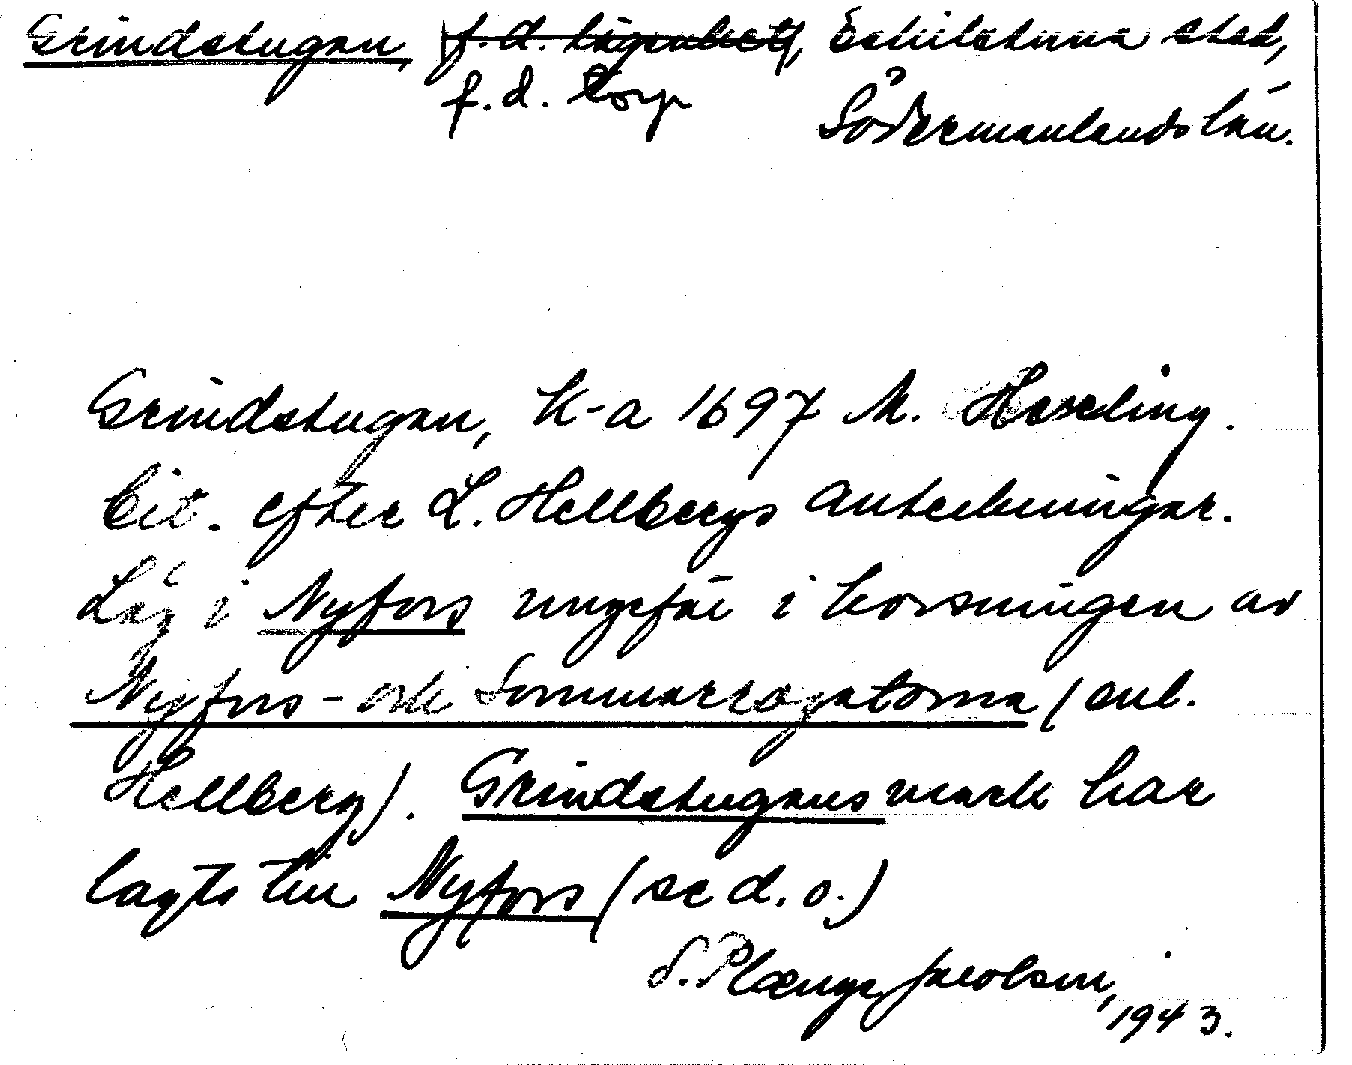 Grindstugan, f.d. lägenhet, Eskilstuna stad,
f.d. torp Södermanlands län.
Grindstugan, K-a 1697 M. Hesseling.
Cit. efter L. Hellbergs anteckningar.
Låg i Nyfors ungefär i korsningen av
Nyfors- och Sommarrogatorna (enl.
Hellberg). Grindstugans mark har
lagts till Nyfors (se d.o.)
S. Plænge Jacobson,
1943.